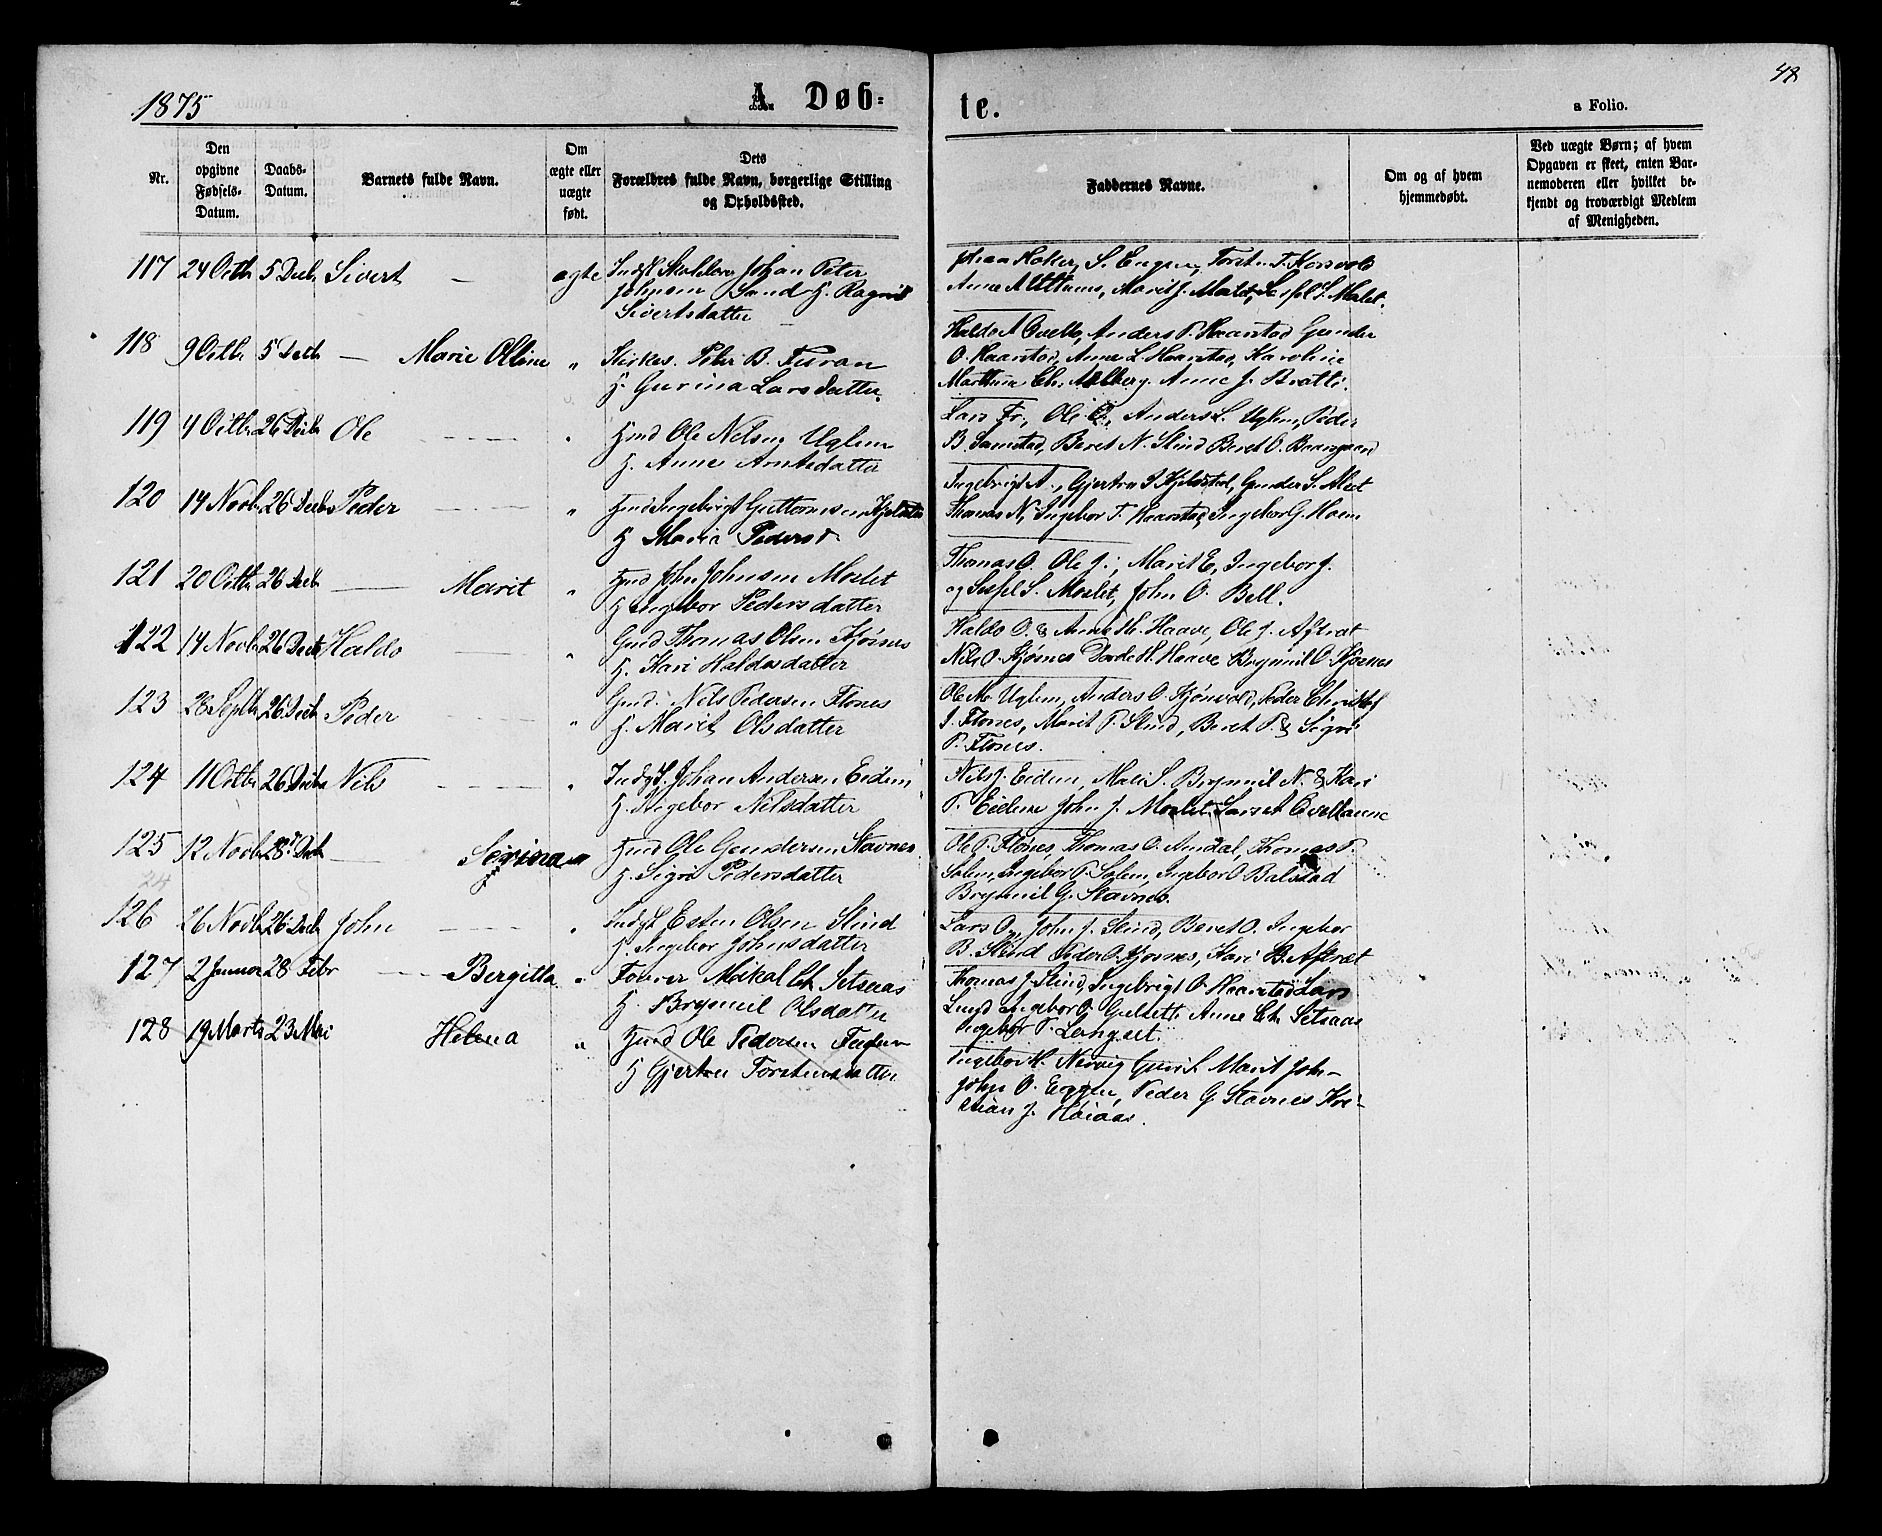 1875 A. Døb= te. a Folio. 48
Nr.
Den opgivne Fødsels-Datum.
Daabs-Datum.
Barnets fulde Navn.
Om ægte eller uægte født.
Dets Forældres fulde Navn, borgerlige Stilling og Opholdssted.
Faddernes Navne.
Om og af hvem hjemmedøbt.
Ved uægte Børn; af hvem
Opgaven er skeet, enten Bar-
nemoderen eller hvilket be-
kjendt og troværdigt Medlem
af Menigheden.
117 24 Octb 5 Decb Sivert — ægte Johan Peter
Johnsen Sund H. Ragnil
Sivertsdatter
Anne
118 9 Octb 5 Decb — Marie Olline " Peter B.
H. Gurina Larsdatter
Haldo A Anders P. Haarstad Gunder
O. Haarstad, Anne L. Haarstad, Karoline
Anne J. Bratli.
119 4 Octb 26 Decb Ole — " Hmd Ole Uglem
H. Anne Arntsdatter
Lars Ole Anders L. Uglem, Peder
B. Beret N. Slind Beret O.
120 14 Novb 26 Decb Peder — " Guttormsen
H Maria Peders
Ingebrigt A., Gjertru Gunder S.
Thomas N, Ingebor T. Haarstad, Ingebor G. Moen
121 20 Octb 26 Decb — Marit " Hmd John Johnsen Moslet
H Ingebor Pedersdatter
Thomas O. Ole J., Marit E, Ingebor J.
og Sissel S. Moslet, John O. Bell.
122 14 Novb 26 Decb Haldo — " Gmd Thomas Olsen Kjøsnes
H. Kari Haldosdatter
Haldo O. & Anne H. Haave, Ole J. Aftret
Nils O. Kjøsnes Dorde H. Haave Brynnil O. Kjøsnes
123 26 Septb 26 Decb Peder — " Gmd. Nils Pedersen Flones
H. Marit Olsdatter
Ole Uglem, Anders O. Peder
J. Flones, Marit P. Slind, Beret P. & Sigri
P. Flones.
124 11 Octb 26 Decb Nils — " Johan Andersen Eidem
H. Ingebor Nilsdatter
Nils J. Eidem, Mali S. Brynnil N. & Kari
P. Eidem John J. Moslet,
125 12 Novb 28 Decb — Serina " Hmd Ole Gundersen Stavnes
H. Sigri Pedersdatter
Ole P. Flones, Thomas O. Amdal, Thomas P.
Solem, Ingebor P. Solem, Ingebor O Balstad
Brynnil G. Stavnes.
24
126 26 Novb 26 Decb John — " Esten Olsen Slind
H. Ingebor Johnsdatter
Lars O, John J. Slind, Beret O. Ingebor
B. Slind Peder O. Kjøsnes, Kari B. Aftret
127 2 Januar 28 Febr — Bergitta " Mikal Ch. Setsaas
H. Brynnil Olsdatter
Thomas J. Slind, Ingebrigt O. Haarstad Lars
Lund Ingebor Anne Ch. Setsaas
Ingebor P. Langset.
128 19 Marts 23 Mai Helena " Hmd Ole Pedersen
H Gjertru Torstensdatter
Ingebor H. Nervig Guri S. Marit Joh-
John O. Eggen, Peder G. Stavnes Kri-
stian J. Høiaas.